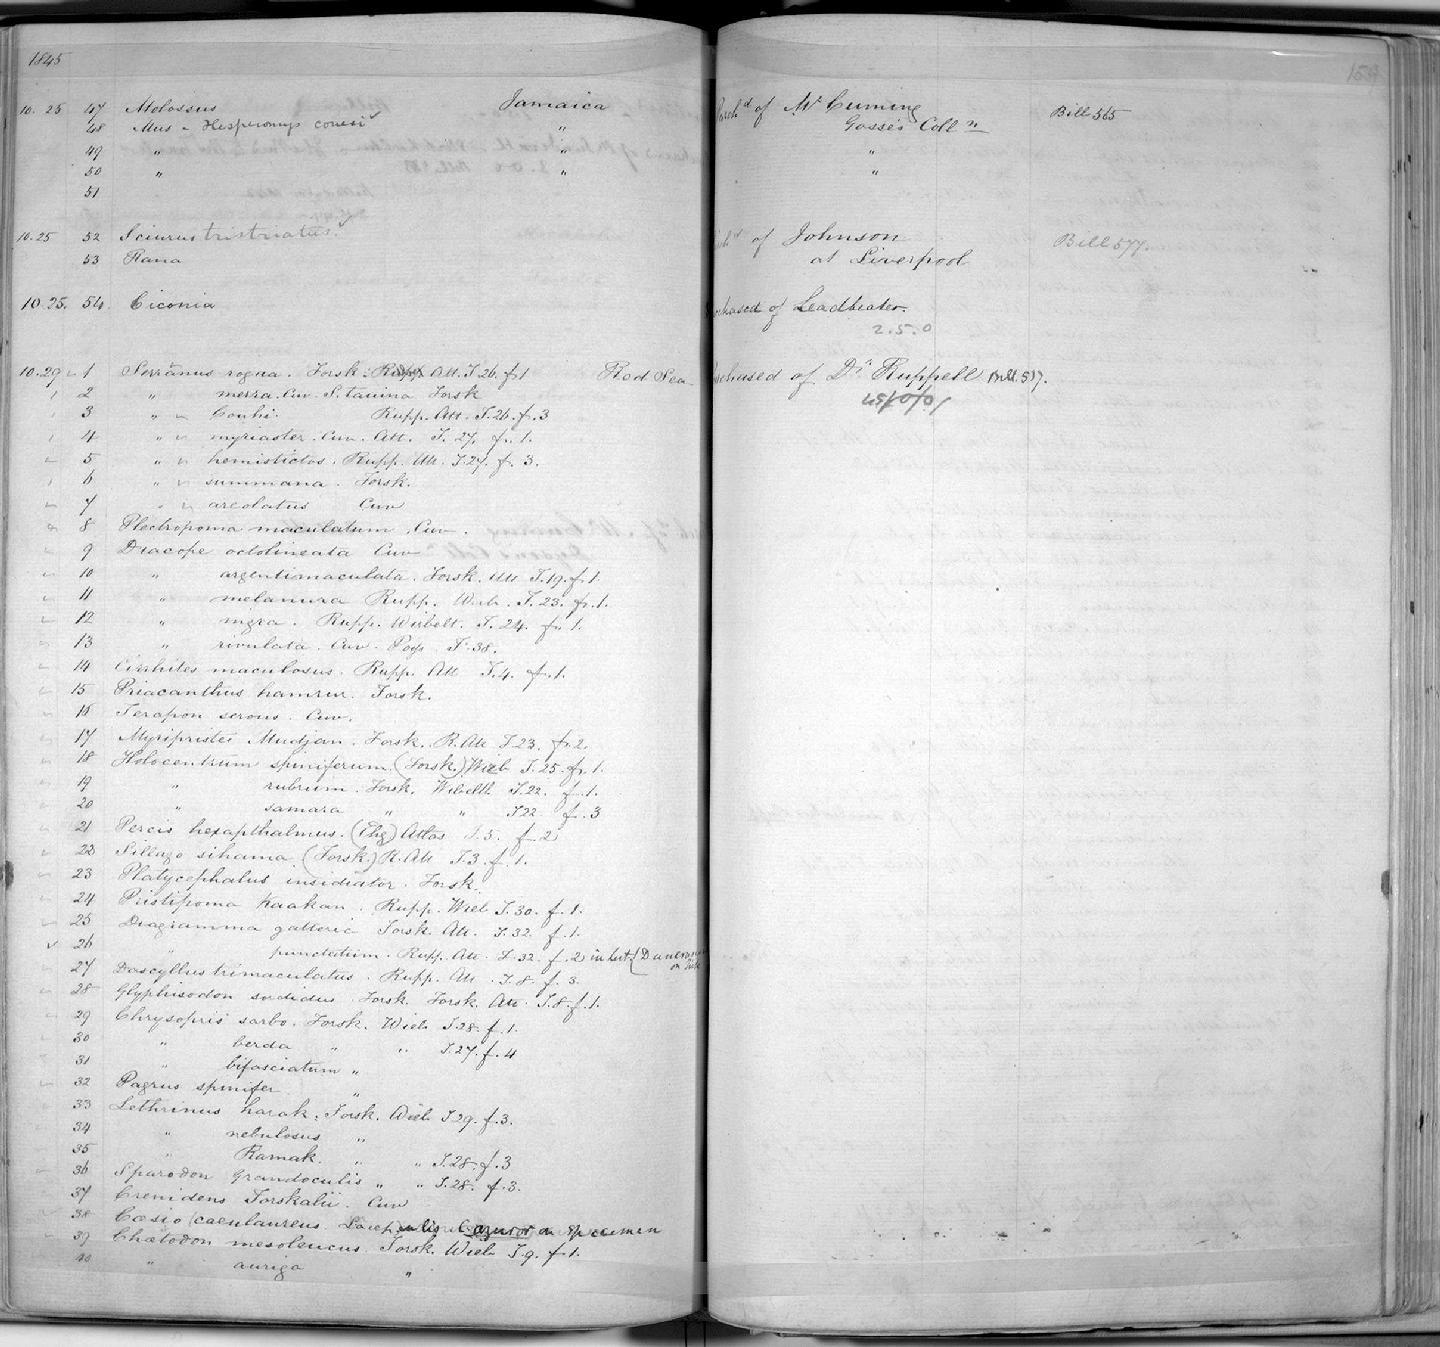 1845
10.25 47 Molossus Jamaica Purchd of Mr Cuming Bill 565
48 Mus - Hesperomys couesi " Gosse's Colln
49 " " "
50 " " "
51
10.25 52 Sciurus tristriatus of Johnson Bill 577.
53 Rana at Liverpool
10.25. 54. Ciconia Purchased of Leadbeater.
2.5.0
10.29 1 Serranus rogna. Forsk. Rupp Att. T.26. f.1 Red Sea Purchased of Dr Ruppell
2 " merra. Cuv. S. tauina Forsk
3 " Rupp. Att. T.26. f. 3
4 " myriaster. Cuv. Att. T. 27. f. 1.
5 " hemistictos. Rupp. Att. T.27. f. 3.
6 " summana. Forsk.
7 " areolatus Cuv
8 Plectropoma maculatum. Cuv.
9 Diacope octolineata Cuv
10 " argentimaculata. Forsk. Att. T.19. f. 1.
11 " melanura Rupp. T. 23. f. 1.
12 " nigra. Rupp. Wirbelt. T. 24. f. 1.
13 " rivulata. Cuv. Poss. T. 38.
14 Cirrhites maculosus. Rupp. Att T.4. f. 1.
15 Priacanthus hamrur. Forsk.
16 Terapon servus. Cuv.
17 Myripristis Mudjan. Forsk. R. Att T 23. f. 2.
18 Holocentrum spiniferum (Forsk.) Wirb T. 25. f. 1.
19 " rubrum. Forsk. T.22. f. 1.
20 " samara " " T22 f. 3
21 Percis hexapthalmus. (Ehg) Atlas T.5. f. 2
22 Sillago sihama (Forsk.) R. Att T.3. f. 1.
23 Platycephalus insidiator. Forsk.
24 Pristipoma Kaakan. Rupp. Wirb T.30. f. 1.
25 Diagramma gatterin Forsk. Att. T.32. f. 1.
26 " punctatum. Rupp. Att. T.32. f. 2 in lit
27 Dascyllus trimaculatus. Rupp. Att. T.8. f. 3.
28 Glyphisodon sordidus. Forsk. Forsk. Att. T.8. f. 1.
29 Chrysophris sarbo. Forsk. Wirb T.28. f. 1.
30 " berda " " T.27. f. 4
31 " bifasciatum "
32 Pagrus spinifer "
33 Lethrinus harak. Forsk. Wirb T29. f. 3.
34 " nebulosus "
35 " Ramak. " " T.28. f. 3
36 Sparodon Grandoculis " " T.28. f. 3.
37 Crenidens Forskalii. Cuv
38 Cæsio caerulaureus. Lacep. azuror on specimen
39 Chætodon mesoleucus. Forsk. Wirb T.9. f. 1.
40 " auriga "